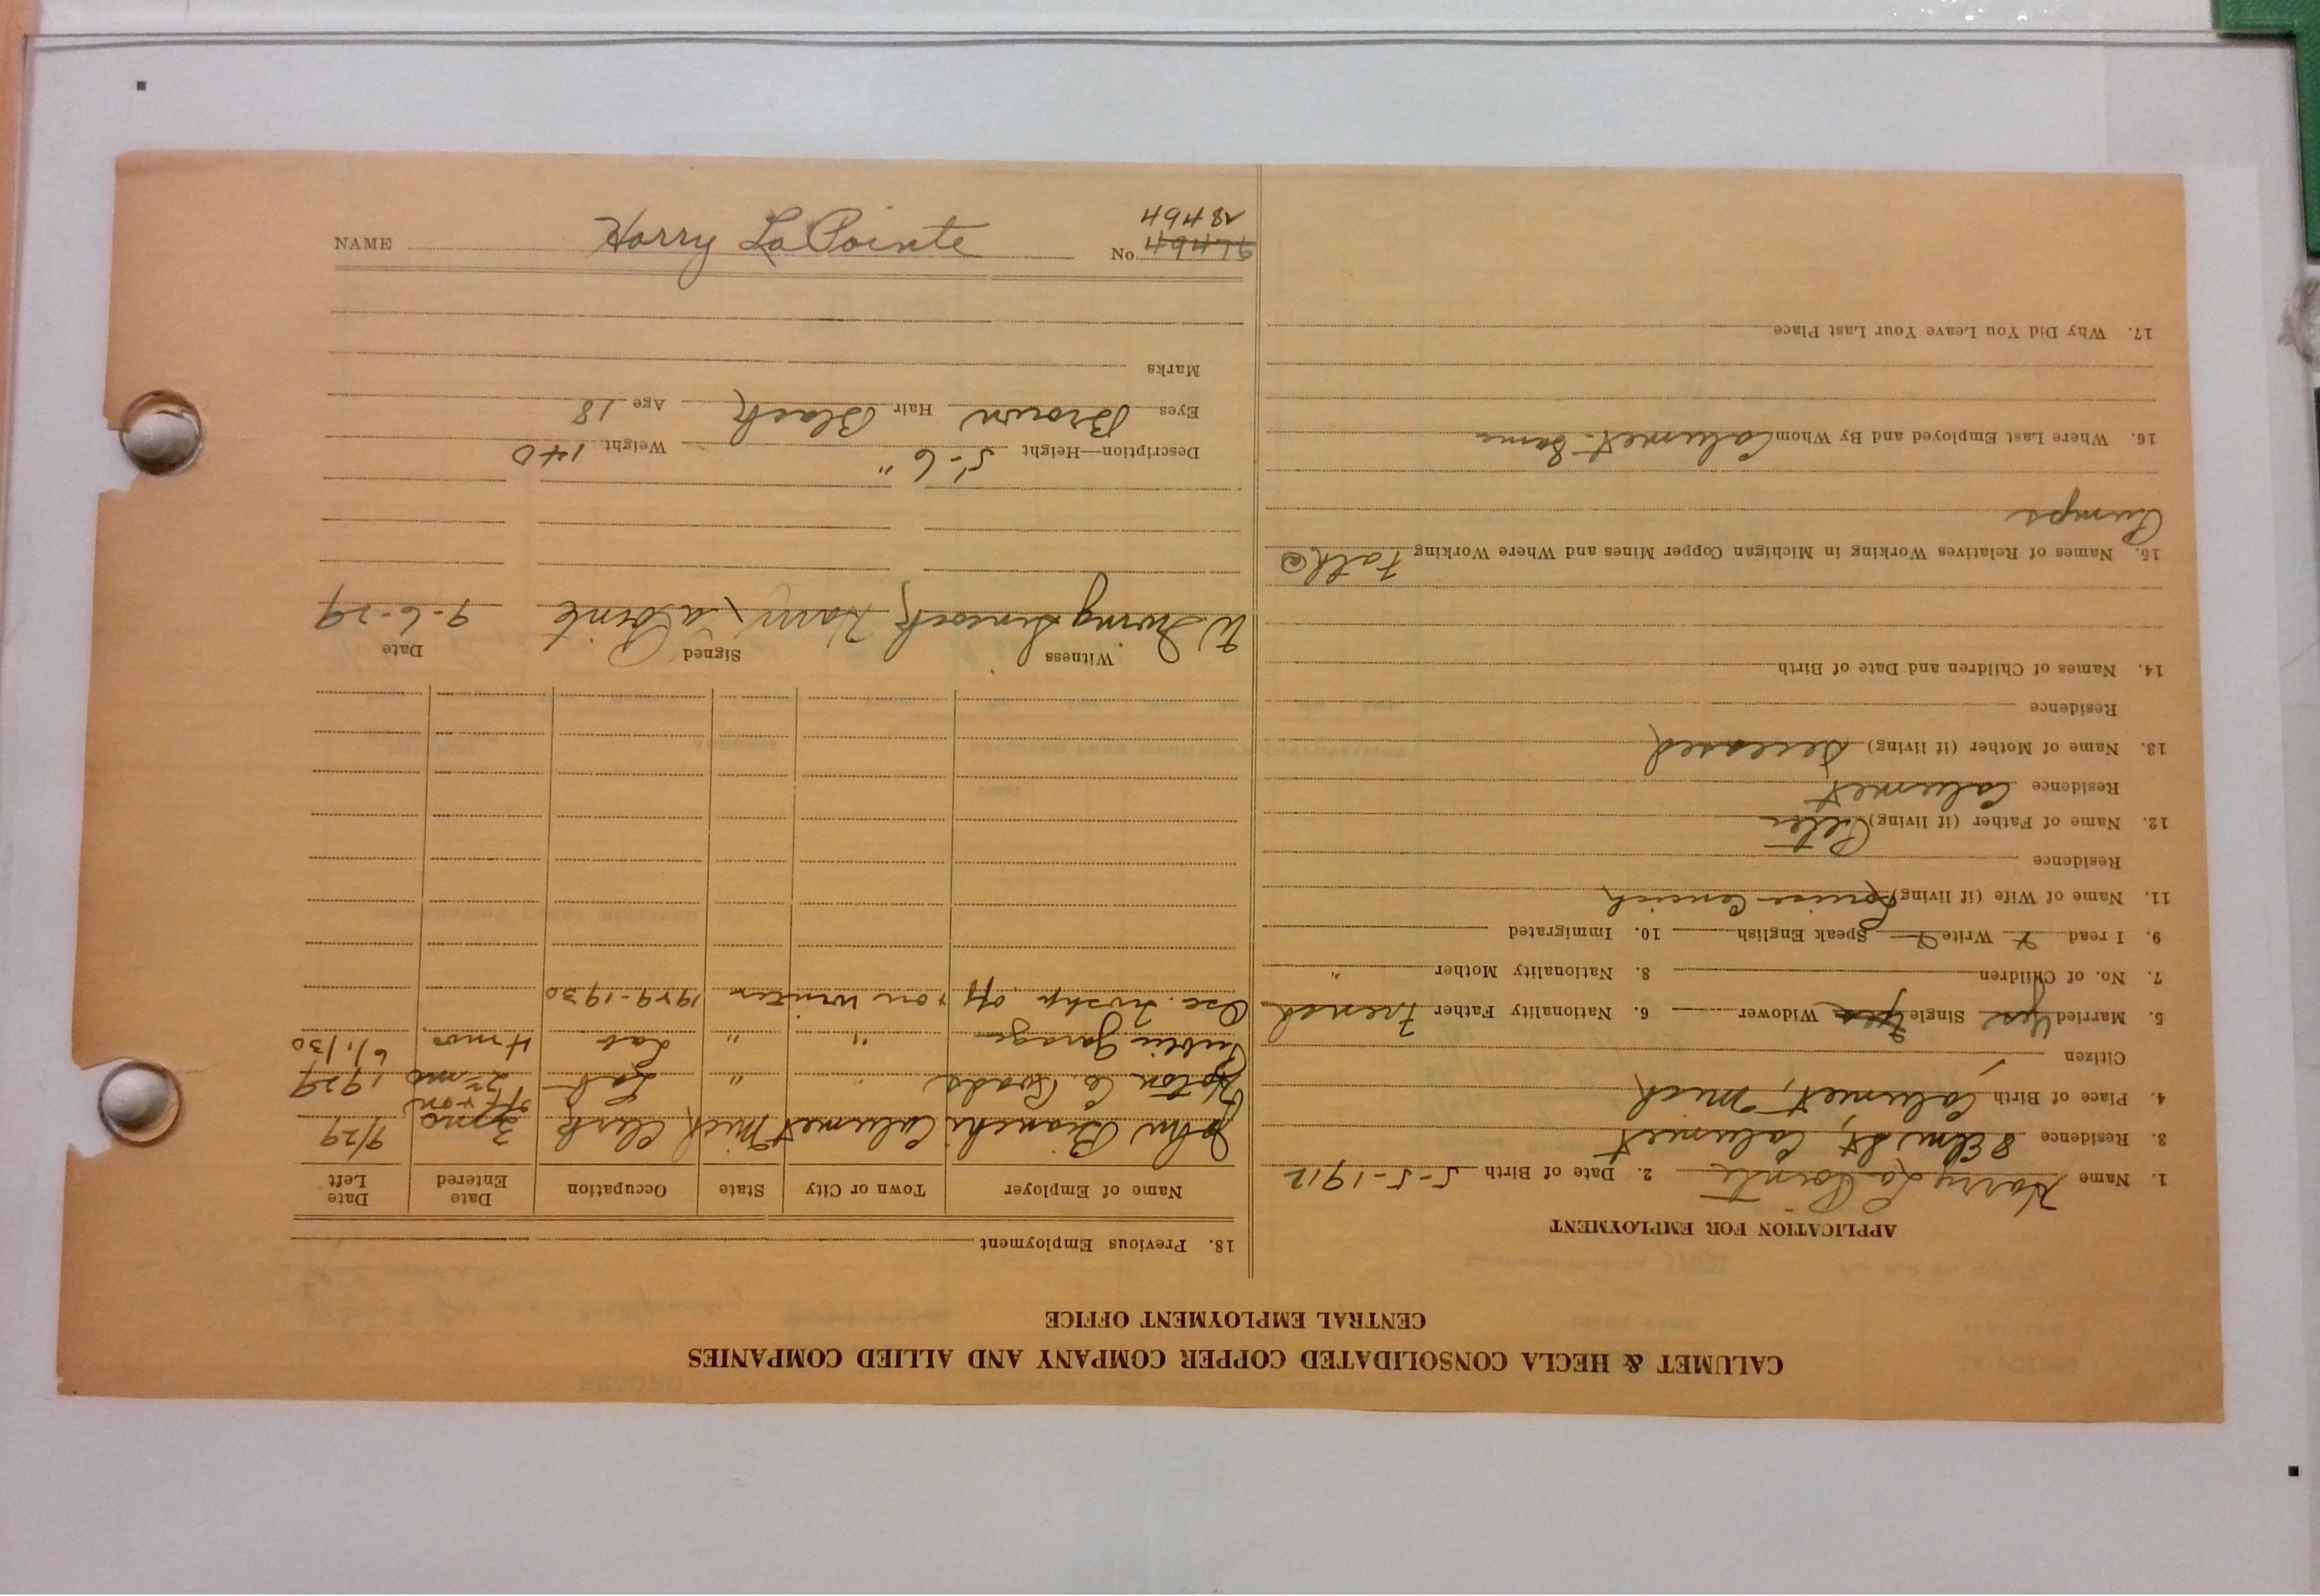 CALUMET & HECLA CONSOLIDATED COPPER COMPANY AND ALLIED COMPANIES
CENTRAL EMPLOYMENT OFFICE
APPLICATION FOR EMPLOYMENT
1. Name Harry La Pointe 2. Date of Birth 5-5-1912
3. Residence 8 Elm St, Calumet
4. Place of Birth Calumet, Mich
Citizen
5. Married Yes Single Yes Widower 6. Nationality Father French
7. No. of Children 8. Nationality Mother "
9. I read Write Speak English 10. Immigrated
11. Name of Wife (if living) Louise
Residence
12. Name of Father (if living) Peter
Residence Calumet
13. Name of Mother (if living) Deceased
Residence
14. Names of Children and Date of Birth
15. Names of Relatives Working in Michigan Copper Mines and Where Working Fath @
Pumps
16. Where Last Employed and By Whom Calumet-Same
17. Why Did You Leave Your Last Place
18. Previous Employment
Name of Employer Town or City State Occupation Date Entered Date Left
John Bianchi Calumet Mich Clerk 3 mo 9/29
off + on
Hoton Co. Roads " " Lab 2 mo 1929
Public Garage " " Lab 4 mos 6/1/30
Osc. Twshp. off + on winter 1929-1930
Witness Signed Date
W. Irving Harry LaPointe 9-6-29
Description—Height 5'-6" Weight 140
Eyes Brown Hair Black Age 18
Marks
NAME Harry La Pointe No.